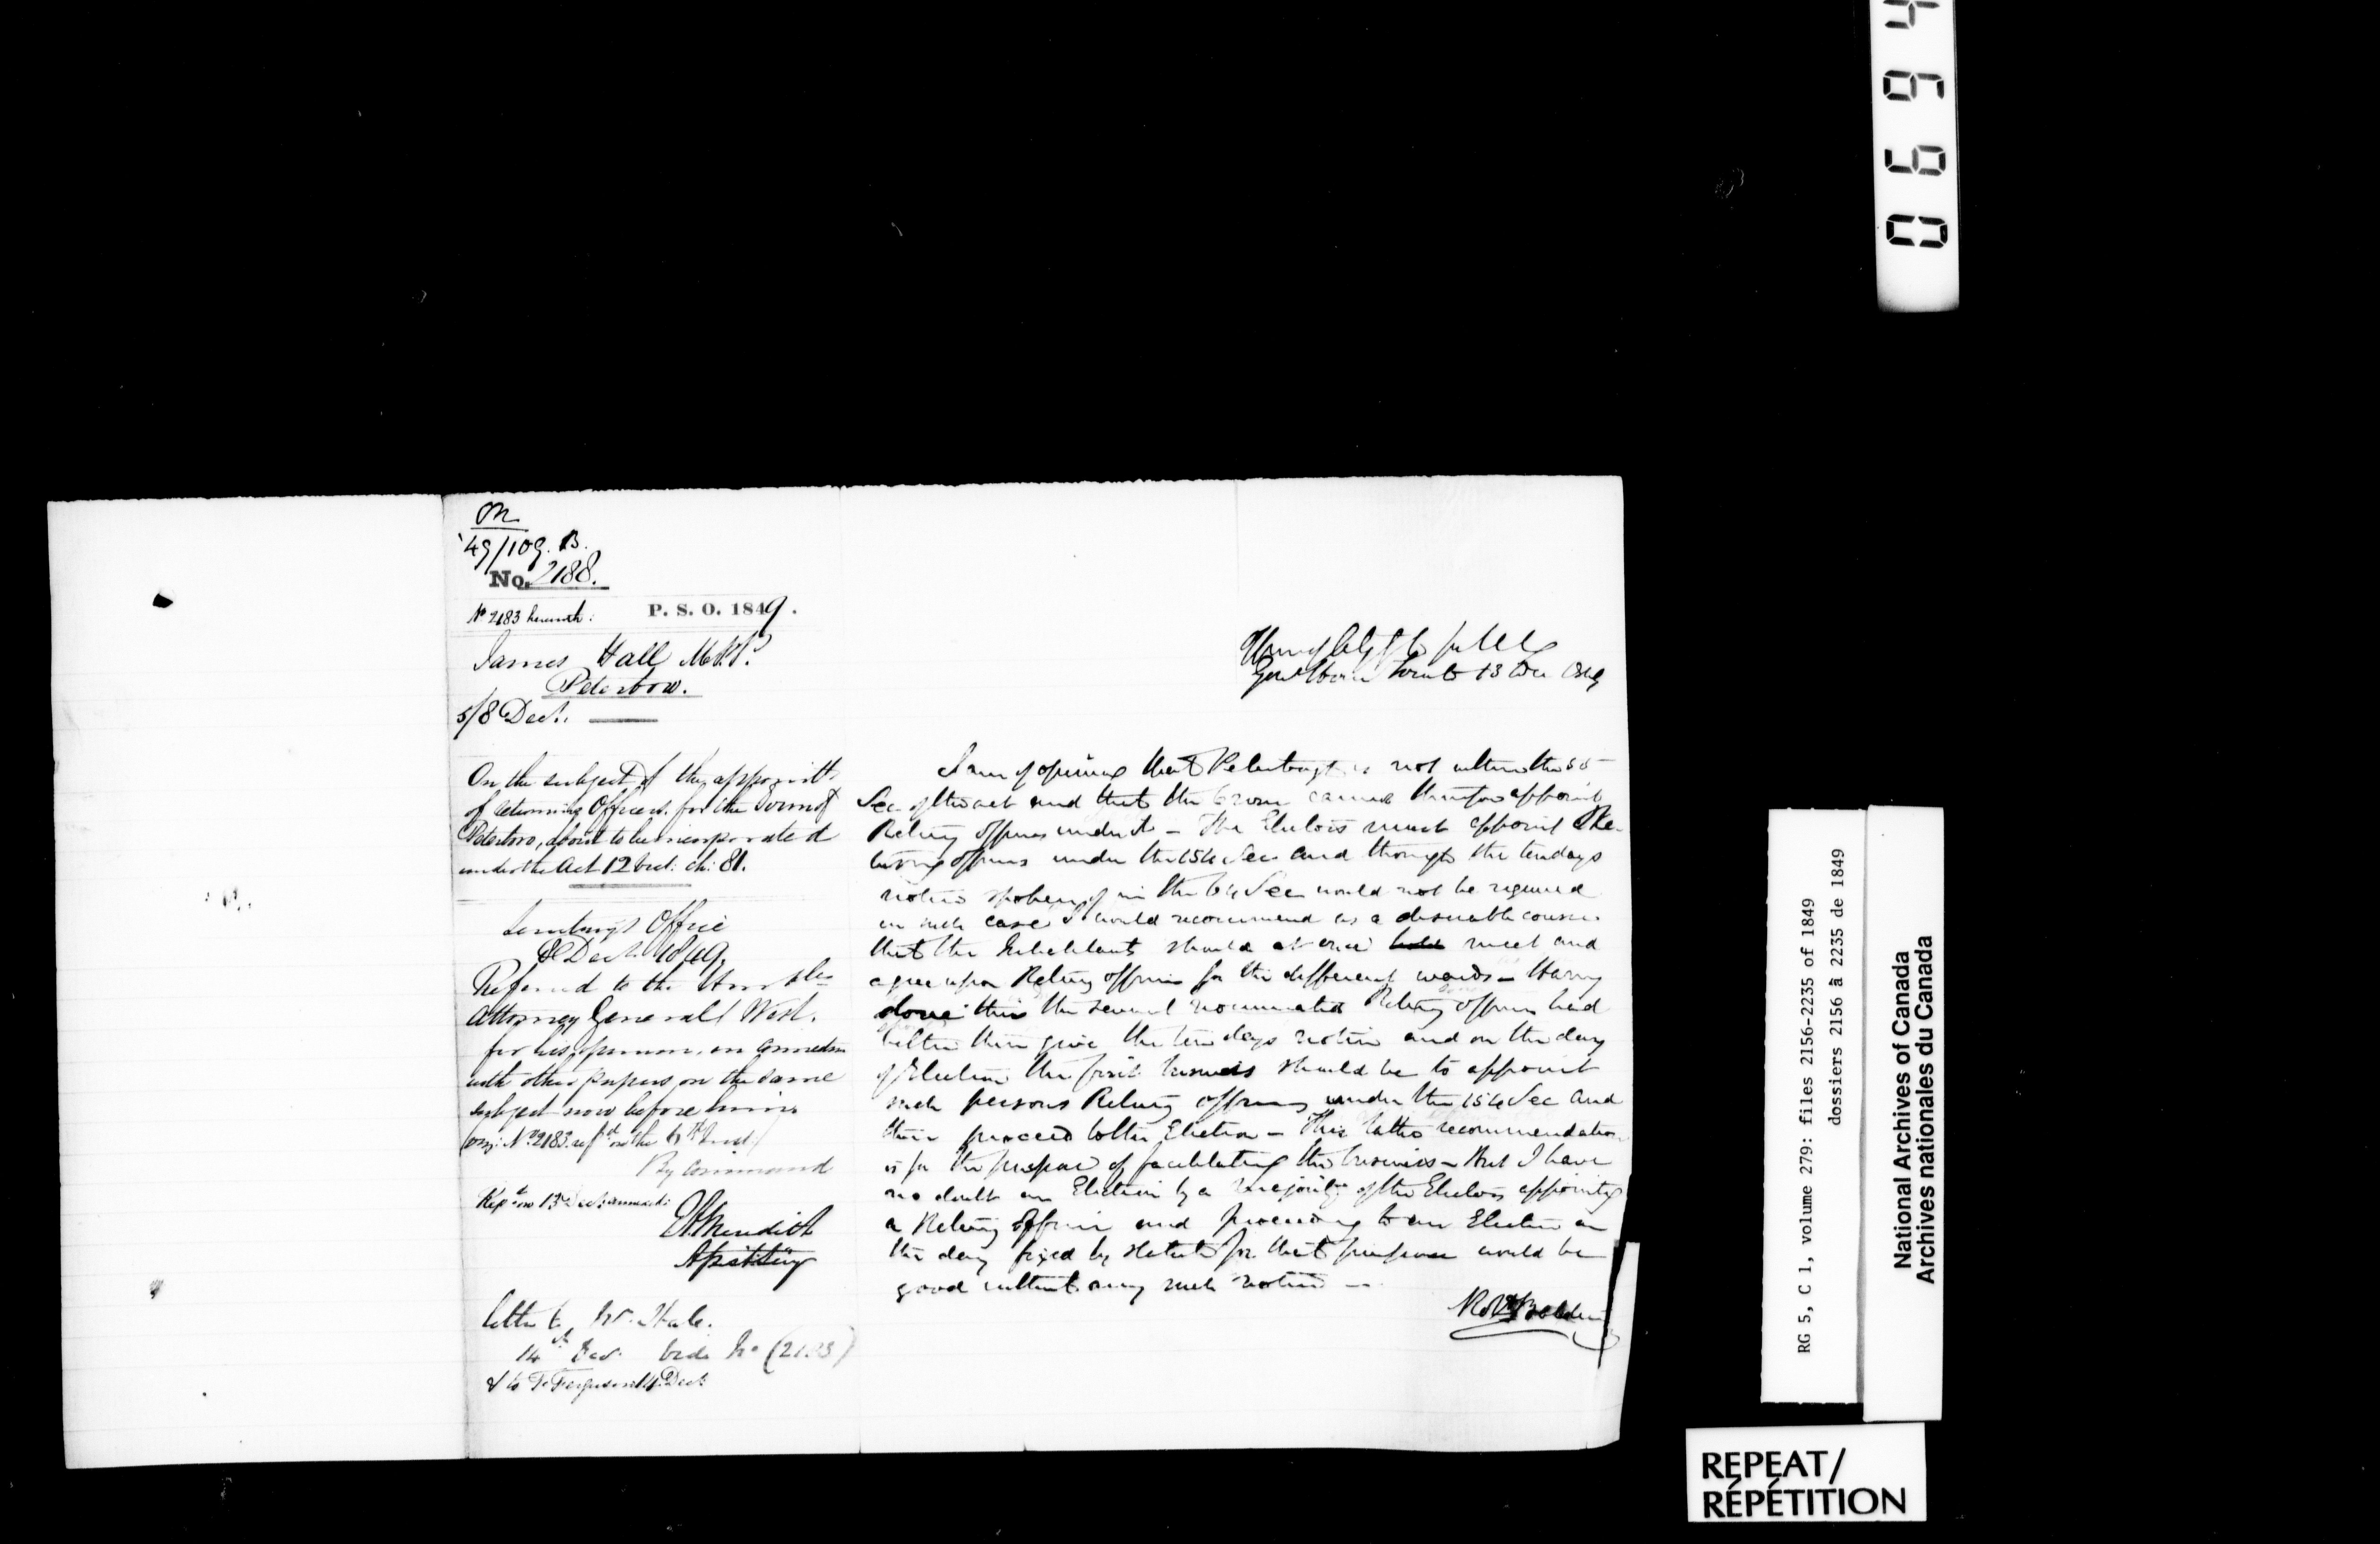 On
'49/109. B.
No. 2188.
No 2183 herewith:
P. S. O. 1849.
James Hall M.P.P.
Peterboro.
5/8 Decr.
On the subject of the appointt.
of returning Officers for the Town of
Peterboro, about to be incorporated
under the Act 12 Vict: ch: 81.
Secretary's Office
8 Decr. 1849.
Referred to the Honble
Attorney General West.
for his opinion, in connection
with other papers on the same
subject now before him
No. 2183 refd on the 6th Inst/
By Command
Repd on 13th Dec: annexed:
E A Meredith
Letter to Mr. Hale.
14th Decr. vide No (2183)
& to T. Ferguson 14 Decr
Toronto 13 Dec 1849
I am of opinion that Peterborough is not within the 55
Sec. of the act and that the Crown cannot therefore appoint
Returng officers under it – The Electors must appoint Re-
turning officers under the 154 Sec and though the ten days
notice spoken of in the 64 Sec would not be required
in such case I would recommend as a desirable course
that the Inhabitants should at once hold meet and
agree upon Returng officers for the different wards – Having
done this the several nominated Returng officers had
better then give the ten days notice and on the day
of Election the first business should be to appoint
such persons Returng officers under the 154 Sec and
then proceed to the Election – This latter recommendation
is for the purpose of facilitating the business – But I have
no doubt an Election by a majority of the Electors appointg
a Returng officer and proceeding to an Election on
the day fixed by statute for that purpose would be
good without any such notice –
Robt Baldwin
0 6 9 4
RG 5, C 1, volume 279: files 2156-2235 of 1849
dossiers 2156 à 2235 de 1849
National Archives of Canada
Archives nationales du Canada
REPEAT/
RÉPÉTITION